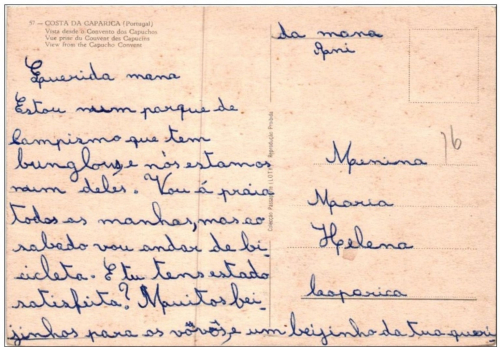 5 - COSTA DA CAPARICA (Portugal)
Vista desde o Convento dos Capuchos
Vue prise du Couvent des Capuchos
View from the Capucho Convent
Querida mana
Estou num parque de
campismo que tem
bunglous, e nós estamos
num deles. Vou á praia
todas as manhas, mas ao
sabedo vou andar de bi-
cicleta. E tu tens estado
satisfeita? Muitos bei-
jinhos para os vôvôs, e um beijinho da tua queri-
da mana
Reprodução Proibida
Menina
Maria
Helena
Caparica
16